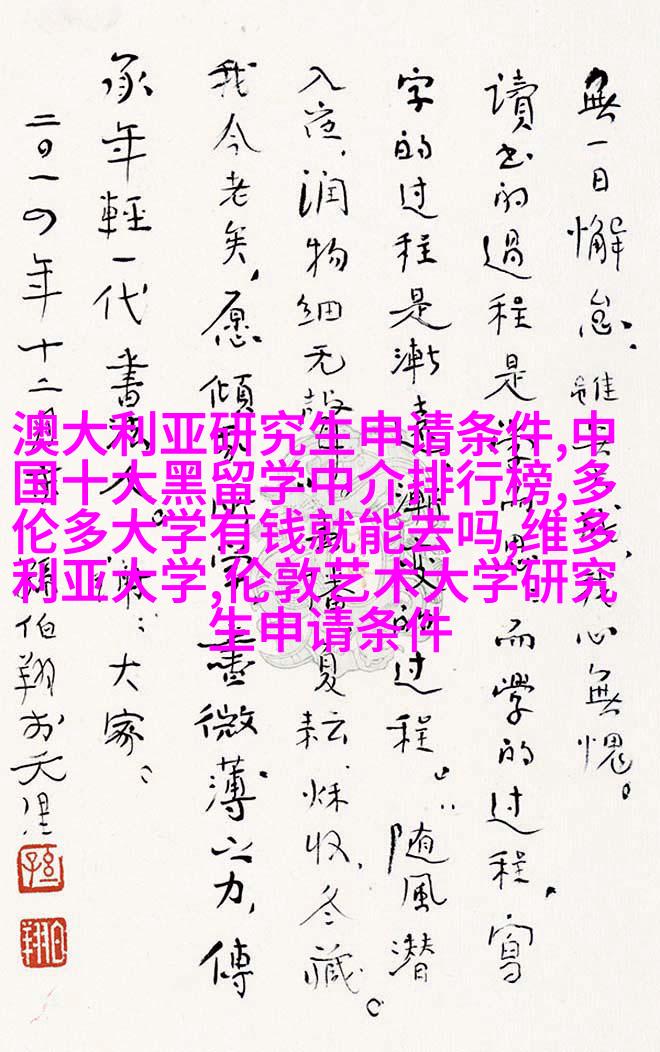 無一日懈怠,雖我心無愧。
讀书的過程是而學的过程,寫
字的过程是漸的过程。随風潜
入夜,润物细无聲夏耘、秋收、冬藏。
我今老矣,愿傾微薄之力,傳
承年輕一代書法人。大家
二〇一四年十二月孫伯翔於天津
澳大利亚研究生申请条件,中
国十大黑留学中介排行榜,多
伦多大学有钱就能去吗,维多
利亚大学,伦敦艺术大学研究
生申请条件